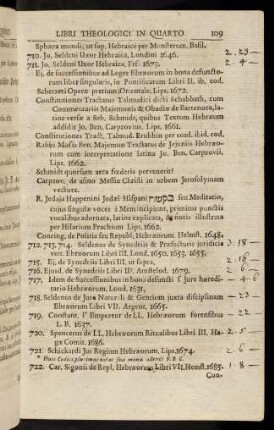 LIBRI THEOLOGICI IN QUARTO. 109
Sphæra mundi, ut sup. Hebraice per Munsterum. Basil.
710. Jo. Seldeni Uxor Hebraica, Londini 1646. 2 . 23 —
711. Jo. Seldeni Uxor Hebraica, Frf. 1673. 2 . 4 —
Ej. de successionibus ad Leges Ebræorum in bona defunctorum liber singularis, in Pontificatum Libri II. ib. eod.
Scherzeri Opere pretium Orientale. Lips. 1672.
Constitutiones Tractatus Talmudici dicti Schabbath, cum
Commentariis Majemonis & Obadiæ de Bartenora, latine versæ a Seb. Schmidt, quibus Textum Hebræum
addidit Jo. Ben. Carpzovius, Lips. 1661.
Constitutiones Tract. Talmud. Erubhin per eosd. ibid. eod.
Rabbi Mosis Ben. Majemon Tractatus de Jejuniis Hebræorum cum interpretatione latina Jo. Ben. Carpzovii,
Lips. 1662.
Schmidt quorsum arca fœderis pervenerit?
Carpzov. de asino Messiæ Christi in urbem Jerosolymam
vecture.
R. Jedaja Happenini Judæi Hispani seu Meditatio,
cujus singulæ voces à Mem incipiunt, primùm punctis
vocalibus adornata, latine explicata, & notis illustrata
per Hilarium Prachium Lips. 1662.
Conring, de Politia seu Republ. Hebræorum. Helmst. 1648.
712. 713. 714. Seldenus de Synedriis & Præfecturis juridicis 3 . 18 —
vet. Ebræorum Libri III, Lond. 1650. 1653. 1655.
715. Ej. de Synedriis Libri III, ut supra,
716. Ejusd. de Synedriis Libri IIIº. Amstelod. 1679. 2 . 6 —
717. Idem de Successionibus in bona defuncti & Jure hæreditario Hebræorum. Lond. 1631,
718. Seldenus de Jure Naturali & Gentium juxta disciplinam — 23 —
Ebræorum Libri VII. Argent. 1665.
719. Constant. l' Empereur de LL. Hebræorum forensibus — 22 —
L. B. 1637.
720. Spencerus de LL. Hebræorum Ritualibus Libri III. Hagæ Comit. 1686. 2 . 5 —
721. Schickardi Jus Regium Hebræorum, Lips. 1674. 2 6
722. Car. Sigonii de Repl. Hebræorum Libri VII. Hemst. 1685. 1 . 8 —
Con-